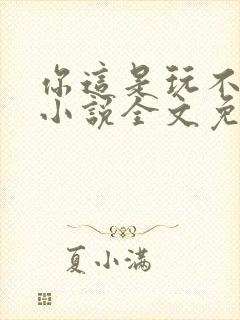 你這是玩不
小說全文免
夏小滿